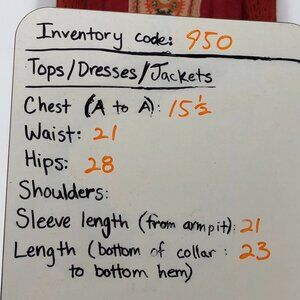 Inventory code: 950
Tops/Dresses/Jackets
Chest (A to A): 15 1/2
Waist: 21
Hips: 28
Shoulders:
Sleeve length (from armpit): 21
Length (bottom of collar : 23
to bottom hem)